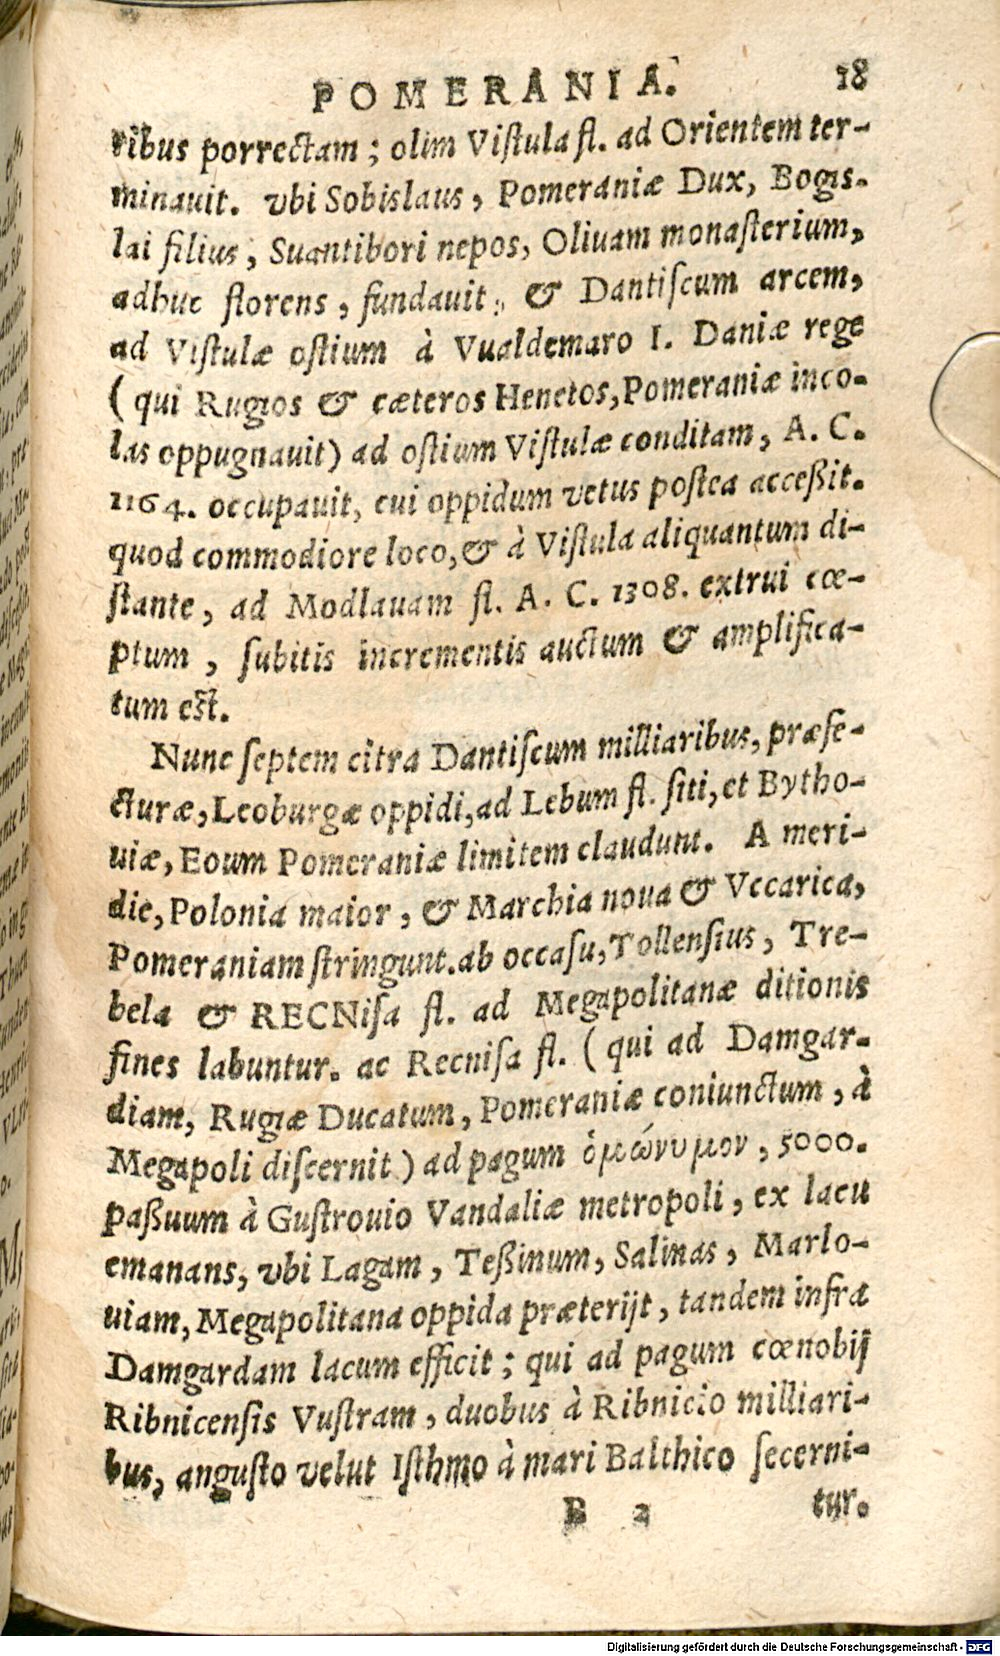 POMERANIA. 18
ribus porrectam ; olim Viſtula fl. ad Orientem ter-
minauit. vbi Sobislaus , Pomeraniæ Dux, Bogis-
lai filius , Suantibori nepos, Oliuam monaſterium,
adhuc florens , fundauit , & Dantiſcum arcem,
ad Viſtulæ oſtium à Vualdemaro I. Daniæ rege
( qui Rugios & cæteros Henetos, Pomeraniæ inco-
las oppugnauit) ad oſtium Viſtulæ conditam, A. C.
1164. occupauit, cui oppidum vetus poſtea acceßit.
quod commodiore loco, & à Viſtula aliquantum di-
ſtante , ad Modlauam fl. A. C. 1308. extrui cœ-
ptum , ſubitis incrementis auctum & amplifica-
tum eſt.
Nunc ſeptem citra Dantiſcum milliaribus, præfe-
cturæ, Leoburgæ oppidi, ad Lebum fl. ſiti, et Bytho-
uiæ, Eoum Pomeraniæ limitem claudunt. A meri-
die, Polonia maior , & Marchia noua & Vccarica,
Pomeraniam ſtringunt. ab occaſu, Tollenſius, Tre-
bela & RECNiſa fl. ad Megapolitanæ ditionis
fines labuntur. ac Recniſa fl. ( qui ad Damgar-
diam, Rugiæ Ducatum, Pomeraniæ coniunctum , à
Megapoli diſcernit ) ad pagum ὁμώνυμον , 5000.
paßuum à Guſtrouio Vandaliæ metropoli , ex lacu
emanans, vbi Lagam , Teßinum, Salinas , Marlo-
uiam, Megapolitana oppida præterijt , tandem infra
Damgardam lacum efficit ; qui ad pagum cœnobij
Ribnicenſis Vuſtram , duobus à Ribnicio milliari-
bus, anguſto velut Iſthmo à mari Balthico ſecerni-
B 2 tur.
Digitalisierung gefördert durch die Deutsche Forschungsgemeinschaft - DFG